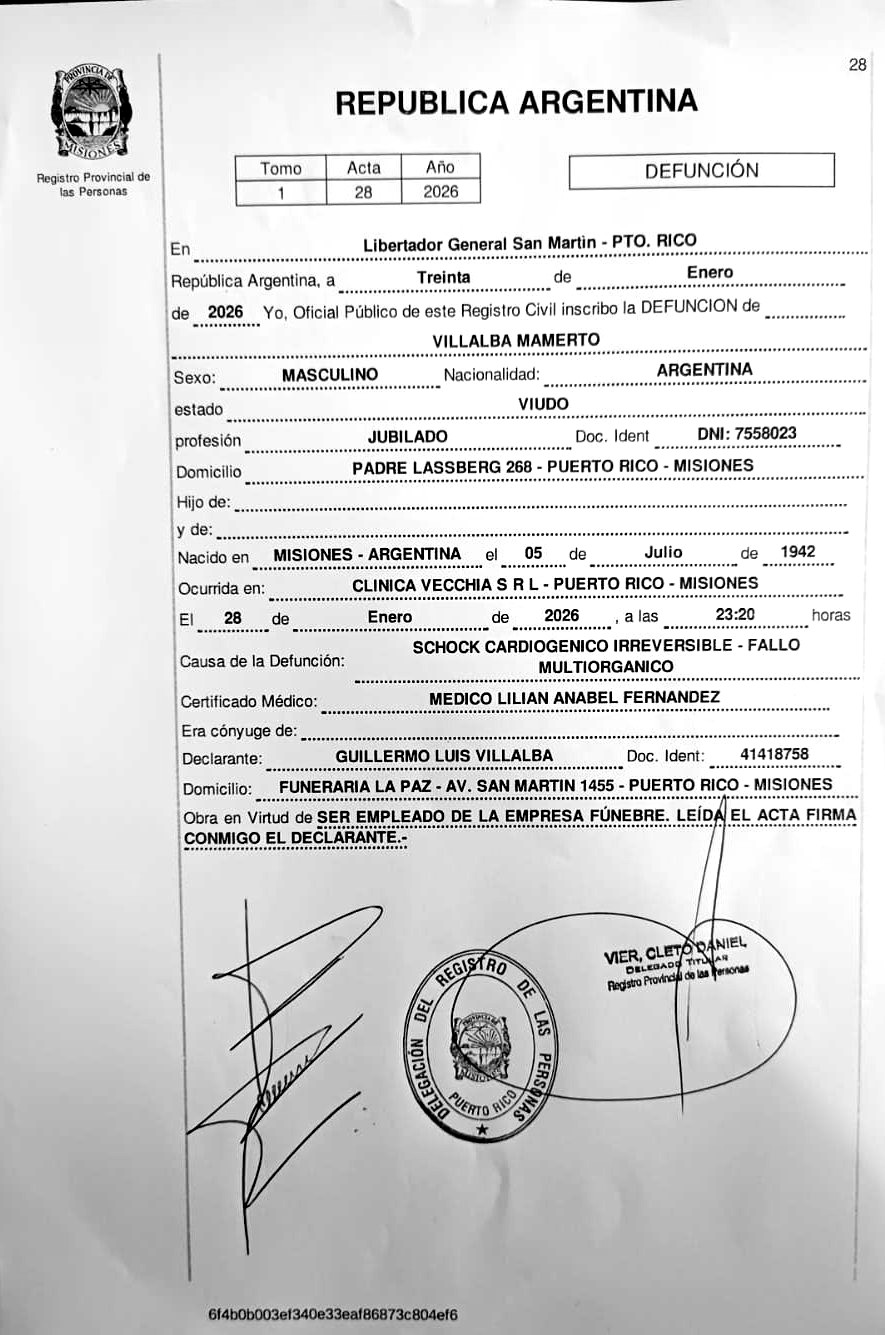 28
PROVINCIA DE
MISIONES
Registro Provincial de
las Personas
REPUBLICA ARGENTINA
Tomo Acta Año
1 28 2026
DEFUNCIÓN
En Libertador General San Martin - PTO. RICO
República Argentina, a Treinta de Enero
de 2026 Yo, Oficial Público de este Registro Civil inscribo la DEFUNCION de
VILLALBA MAMERTO
Sexo: MASCULINO Nacionalidad: ARGENTINA
estado VIUDO
profesión JUBILADO Doc. Ident DNI: 7558023
Domicilio PADRE LASSBERG 268 - PUERTO RICO - MISIONES
Hijo de:
y de:
Nacido en MISIONES - ARGENTINA el 05 de Julio de 1942
Ocurrida en: CLINICA VECCHIA S R L - PUERTO RICO - MISIONES
El 28 de Enero de 2026 , a las 23:20 horas
Causa de la Defunción: SCHOCK CARDIOGENICO IRREVERSIBLE - FALLO
MULTIORGANICO
Certificado Médico: MEDICO LILIAN ANABEL FERNANDEZ
Era cónyuge de:
Declarante: GUILLERMO LUIS VILLALBA Doc. Ident: 41418758
Domicilio: FUNERARIA LA PAZ - AV. SAN MARTIN 1455 - PUERTO RICO - MISIONES
Obra en Virtud de SER EMPLEADO DE LA EMPRESA FÚNEBRE. LEÍDA EL ACTA FIRMA
CONMIGO EL DECLARANTE.-
VIER, CLETO DANIEL
DELEGADO TITULAR
Registro Provincial de las Personas
DELEGACIÓN DEL REGISTRO DE LAS PERSONAS
PROVINCIA DE
MISIONES
PUERTO RICO
6f4b0b003ef340e33eaf86873c804ef6